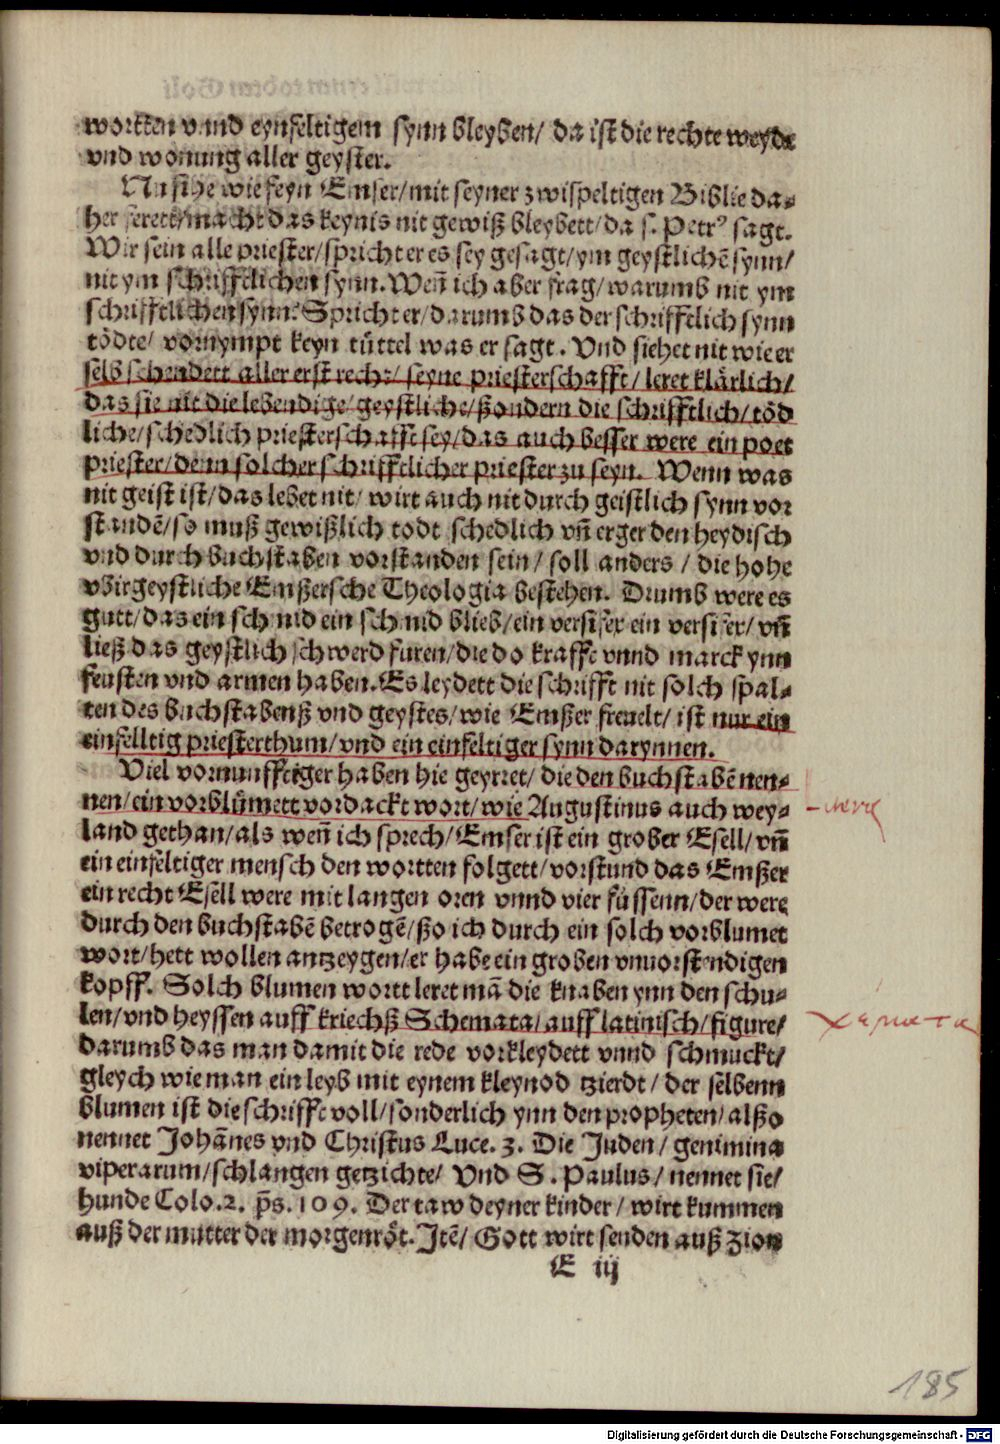 wortten vnnd eynfeltigem synn bleyben/ da ist die rechte weyde
vnd wonung aller geyster.
Nu sihe wie feyn Emser/mit seyner zwispeltigen Biblie da⸗
her feret/macht das keynis nit gewiß bleybett/da s. Petrꝰ sagt.
Wir sein alle priester/spricht er es sey gesagt/ym geystlichē synn/
nit ym schrifftlichen synn. Weñ ich aber frag/warumb nit ym
schrifftlichen synn? Spricht er/darumb das der schrifftlich synn
tödte/ vornympt keyn tüttel was er sagt. Vnd siehet nit wie er
selb schendett aller erst recht/ seyne priesterschafft/leret klärlich/
das sie nit die lebendige/geystliche/ßondern die schrifftlich/töd
liche/schedlich priesterschafft sey/das auch besser were ein poet
priester/denn solcher schrifftlicher priester zu seyn. Wenn was
nit geist ist/das lebet nit/ wirt auch nit durch geistlich synn vor
standē/so muß gewißlich todt schedlich vñ erger den heydisch
vnd durch buchstaben vorstanden sein/ soll anders/ die hohe
vbirgeystliche Emßersche Theologia bestehen. Drumb were es
gutt/das ein schmid ein schmid blieb/ein versifer ein versifer/vñ
ließ das geystlich schwerd furen/die do krafft vnnd marck ynn
feusten vnd armen haben. Es leydett die schrifft nit solch spal⸗
ten des buchstabenß vnd geystes/wie Emßer freuelt/ist nur ein
einfelltig priesterthum/vnd ein einfeltiger synn darynnen.
Viel vornunfftiger haben hie geyrret/die den buchstabē nen⸗
nen/ein vorblümett vordackt wort/wie Augustinus auch wey⸗
land gethan/als weñ ich sprech/Emser ist ein grober Esell/vñ
ein einfeltiger mensch den wortten folgett/vorstund das Emßer
ein recht Esell were mit langen oren vnnd vier füssenn/der were
durch den buchstabē betrogē/ßo ich durch ein solch vorblumet
wort/hett wollen antzeygen/er habe ein groben vnuorstendigen
kopff. Solch blumen wortt leret mā die knaben ynn den schu⸗
len/vnd heyssen auff kriechß Schemata/auff latinisch/figure/
χεματα
darumb das man damit die rede vorkleydett vnnd schmuckt/
gleych wie man ein leyb mit eynem kleynod tzierdt/ der selbenn
blumen ist die schrifft voll/sonderlich ynn den propheten/alßo
nennet Johānes vnd Christus Luce. 3. Die Juden/ genimina
viperarum/schlangen getzichte/ Vnd S. Paulus/nennet sie/
hunde Colo.2. p̄s.109. Der taw deyner kinder/wirt kummen
auß der mutter der morgenröt. Jtē/ Gott wirt senden auß Zion
E iij
185
Digitalisierung gefördert durch die Deutsche Forschungsgemeinschaft - DFG